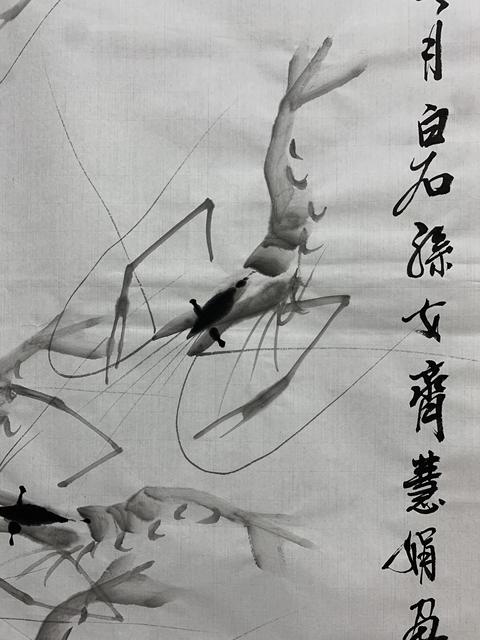 月白石孫女齊慧娟